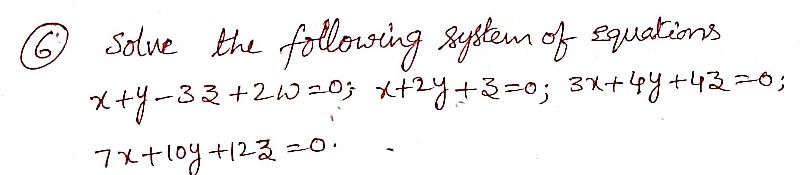 6 Solve the following system of equations
x+y-3z+2w=0; x+2y+z=0; 3x+4y+4z=0;
7x+10y+12z=0.